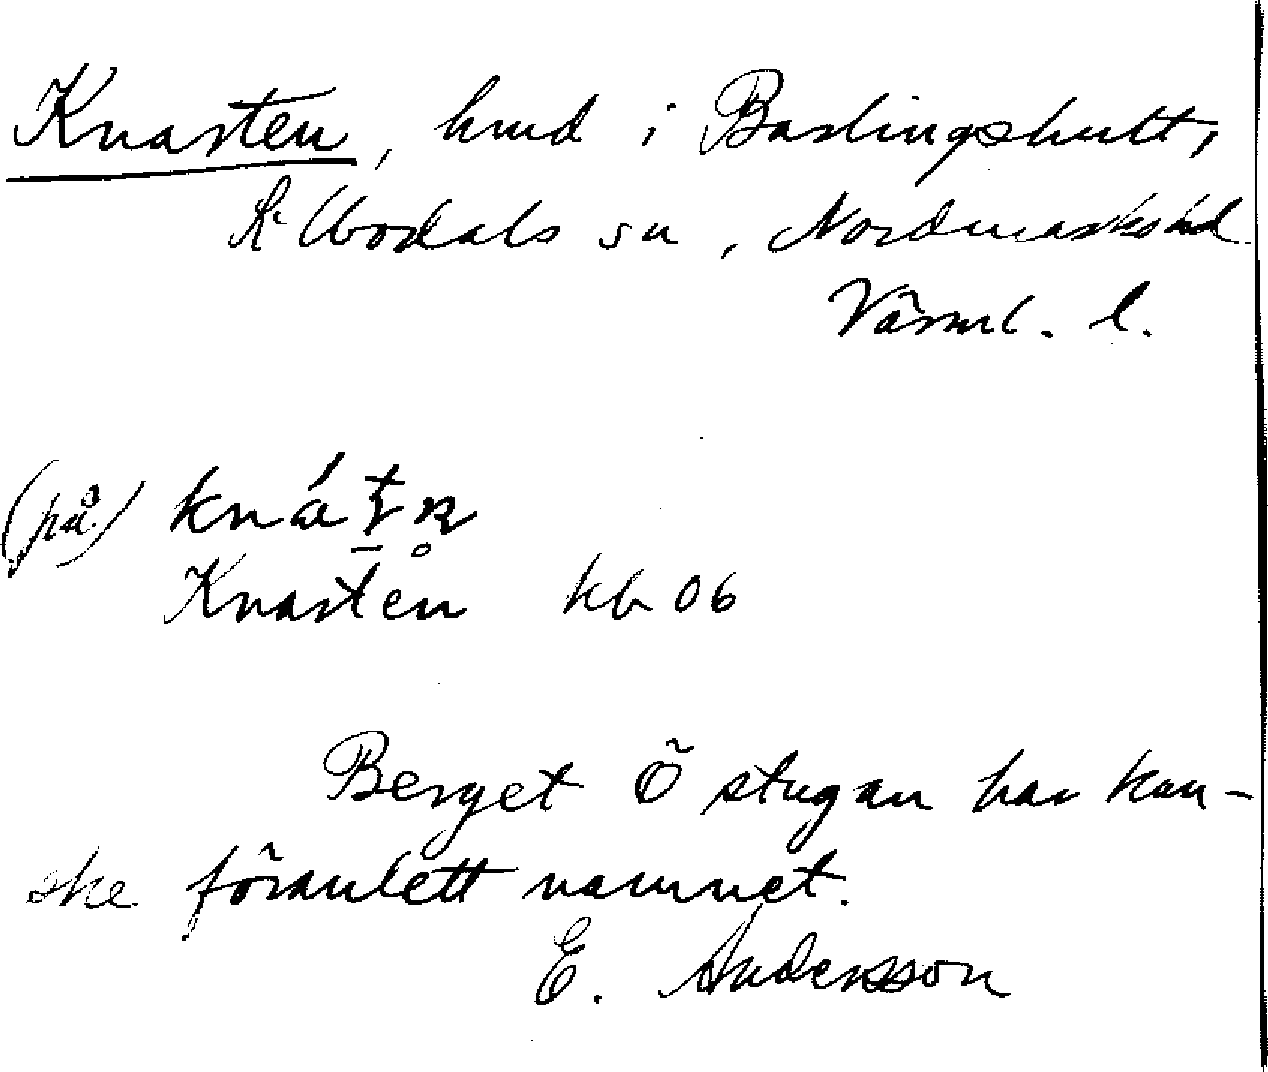 Knarten, hmd i Barlingshult,
K Bordals sn, Nordmarks hd
Värml. l.
(på) knátn
Knarten kb 06
Berget Ö stugan har kan-
ske föranlett namnet.
E. Andersson